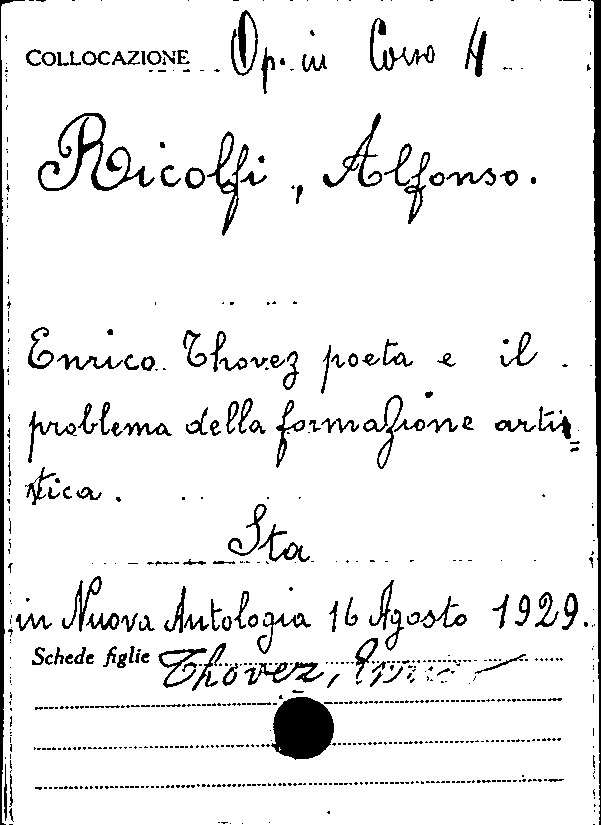 COLLOCAZIONE Op. in Corso 4
Ricolfi, Alfonso.
Enrico Thovez poeta e il
problema della formazione arti=
stica.
Sta
in Nuova Antologia 16 Agosto 1929.
Schede figlie Thovez, Enrico